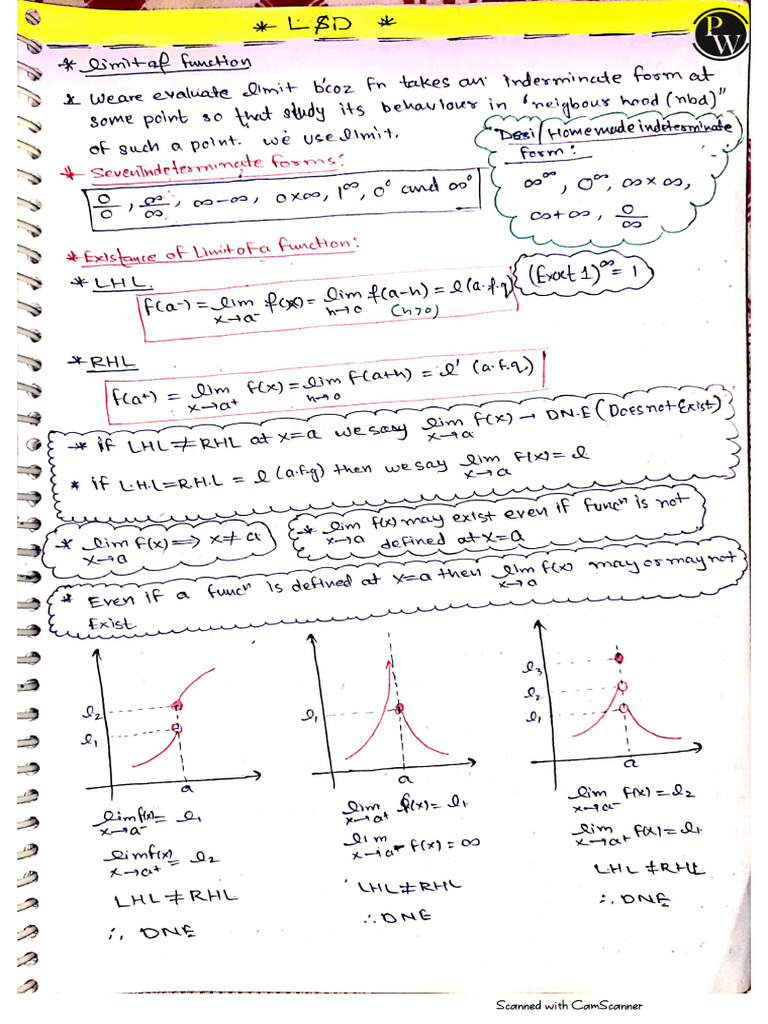 * L S D *
PW
* limit of function
* We are evaluate limit b'coz Fn takes an inderminate form at
some point so that study its behaviour in 'neigbour hood (nbd)"
of such a point. we use limit.
"Desi/Homemade indeterminate
form:
∞^∞, 0^∞, ∞×∞,
∞+∞, 0/∞
* Seven Indeterminate forms:
0/0, ∞/∞, ∞-∞, 0×∞, 1^∞, 0^0 and ∞^0
* Existance of Limit of a function:
(Exact 1)^∞ = 1
* LHL
f(a-) = lim x→a⁻ f(x) = lim h→0 f(a-h) = l (a.f.q)
(h>0)
* RHL
f(a+) = lim x→a⁺ f(x) = lim h→0 f(a+h) = l' (a.f.q.)
* if LHL ≠ RHL at x=a we say lim x→a f(x) → D.N.E (Does not Exist)
* if L.H.L = R.H.L = l (a.f.q) then we say lim x→a f(x) = l
* lim x→a f(x) ⇒ x ≠ a
* lim x→a f(x) may exist even if funcⁿ is not
defined at x=a
* Even if a funcⁿ is defined at x=a then lim x→a f(x) may or may not
Exist
l₂
l₁
a
lim x→a⁻ f(x) = l₁
lim x→a⁺ f(x) = l₂
LHL ≠ RHL
∴ DNE
l₁
a
lim x→a⁺ f(x) = l₁
lim x→a⁻ f(x) = ∞
LHL ≠ RHL
∴ DNE
l₃
l₂
l₁
a
lim x→a⁻ f(x) = l₂
lim x→a⁺ f(x) = l₁
LHL ≠ RHL
∴ DNE
Scanned with CamScanner